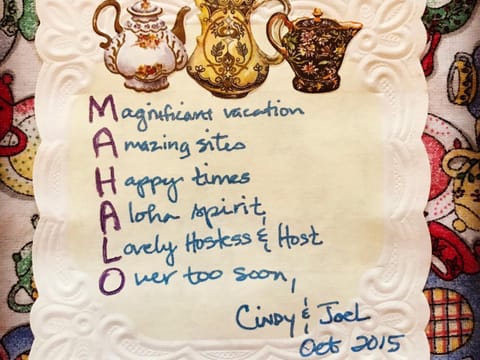 Magnificant vacation
Amazing sites
Happy times
Aloha spirit
Lovely Hostess & Host
Over too soon,
Cindy & Joel
Oct 2015